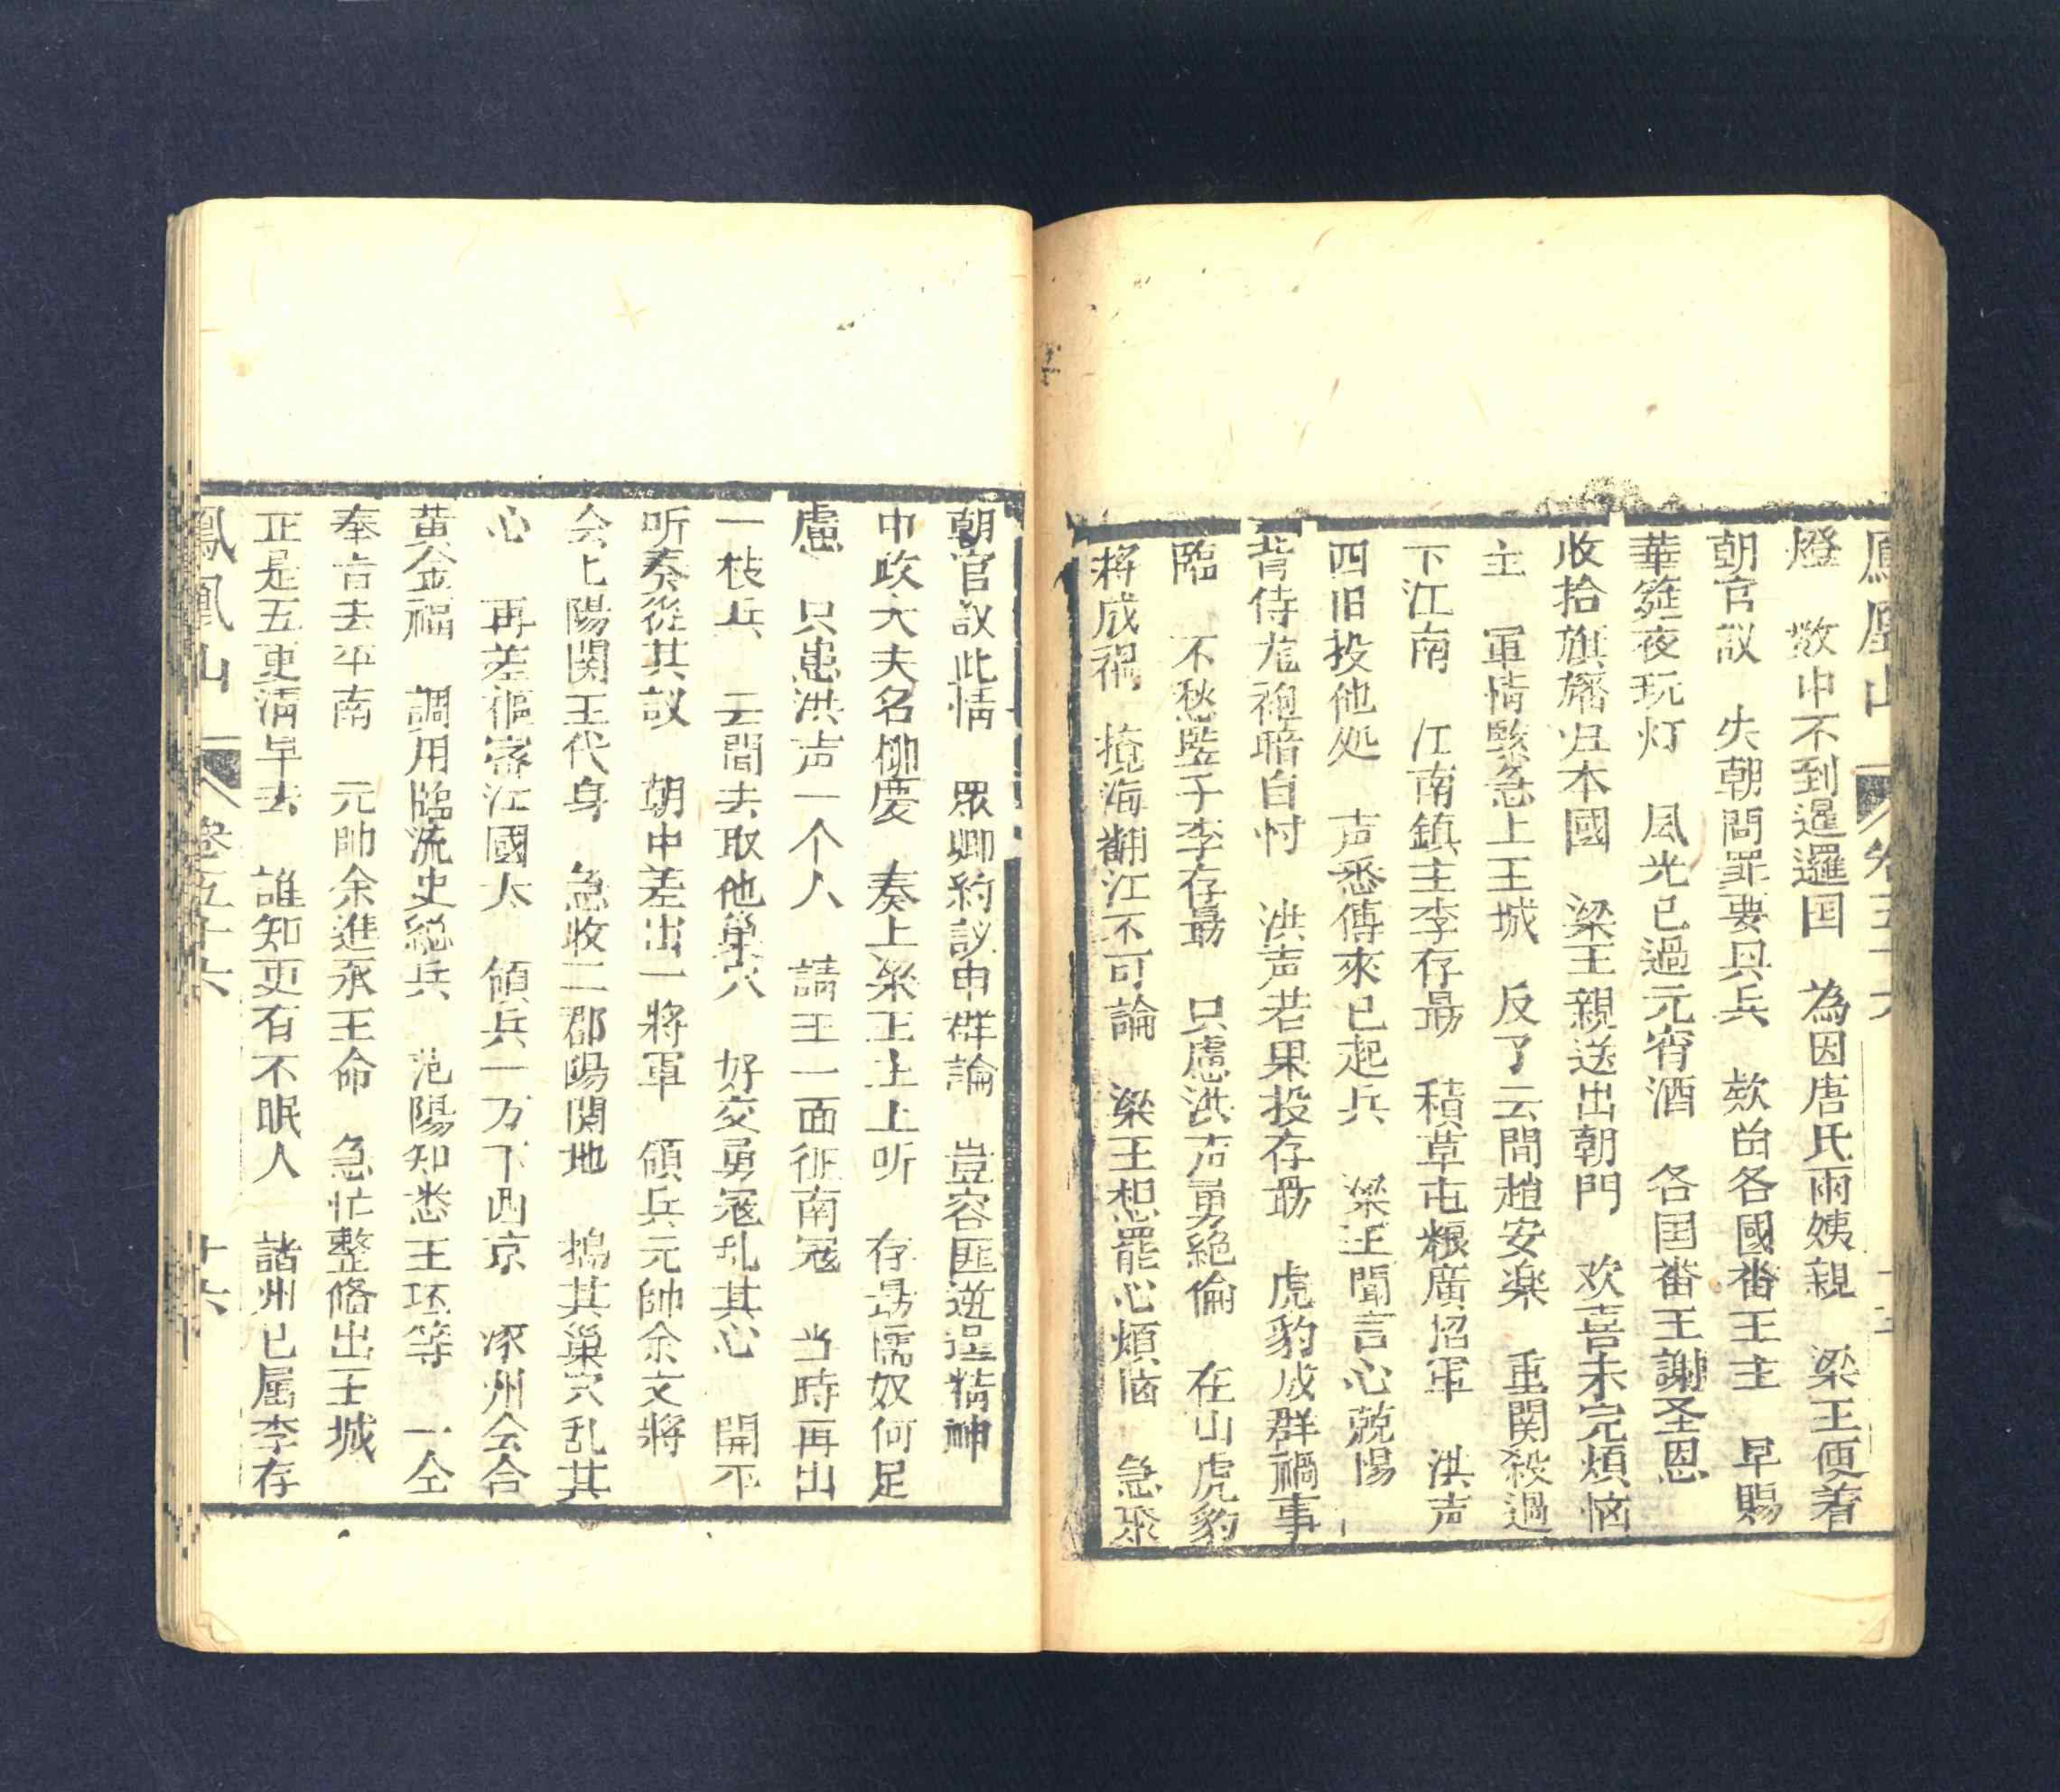 鳳凰山 卷五十六 十五
燈 数中不到暹邏国 為因唐氏兩姨親 梁王便着
朝官议 失朝問罪要興兵 欸畄各國畨王主 早賜
華筵夜玩灯 風光已過元宵酒 各国畨王謝圣恩
收拾旗旛归本國 梁王親送出朝門 欢喜未完煩恼
主 軍情緊急上王城 反了云間趙安楽 重関殺過
下江南 江南鎮主李存勗 積草屯粮廣招軍 洪声
四旧投他処 声悉傳來已起兵 梁王聞言心兢惕
背侍龙袍暗自忖 洪声若果投存勗 虎豹成群禍事
臨 不愁竪子李存勗 只慮洪声勇絶倫 在山虎豹
将成祸 搅海翻江不可論 梁王想罷心煩恼 急聚
朝官议此情 眾卿約议申群論 豈容匪逆逞精神
中政大夫名柳慶 奏上梁王主上听 存勗懦奴何足
慮 只患洪声一个人 請王一面征南冦 当時再出
一枝兵 云間去取他巢穴 好交勇冦乱其心 開平
听奏從其议 朝中差出一将軍 領兵元帥余文將
会上陽関王代身 急收二郡陽関地 搗其巢穴乱其
心 再差樞密江國太 領兵一万下西京 涿州会合
黄金福 調用臨流史総兵 范陽知悉王环等 一仝
奉旨去平南 元帥余進承王命 急忙整俻出王城
正是五更清早去 誰知更有不眠人 諸州已属李存
鳳凰山 卷五十六 十六